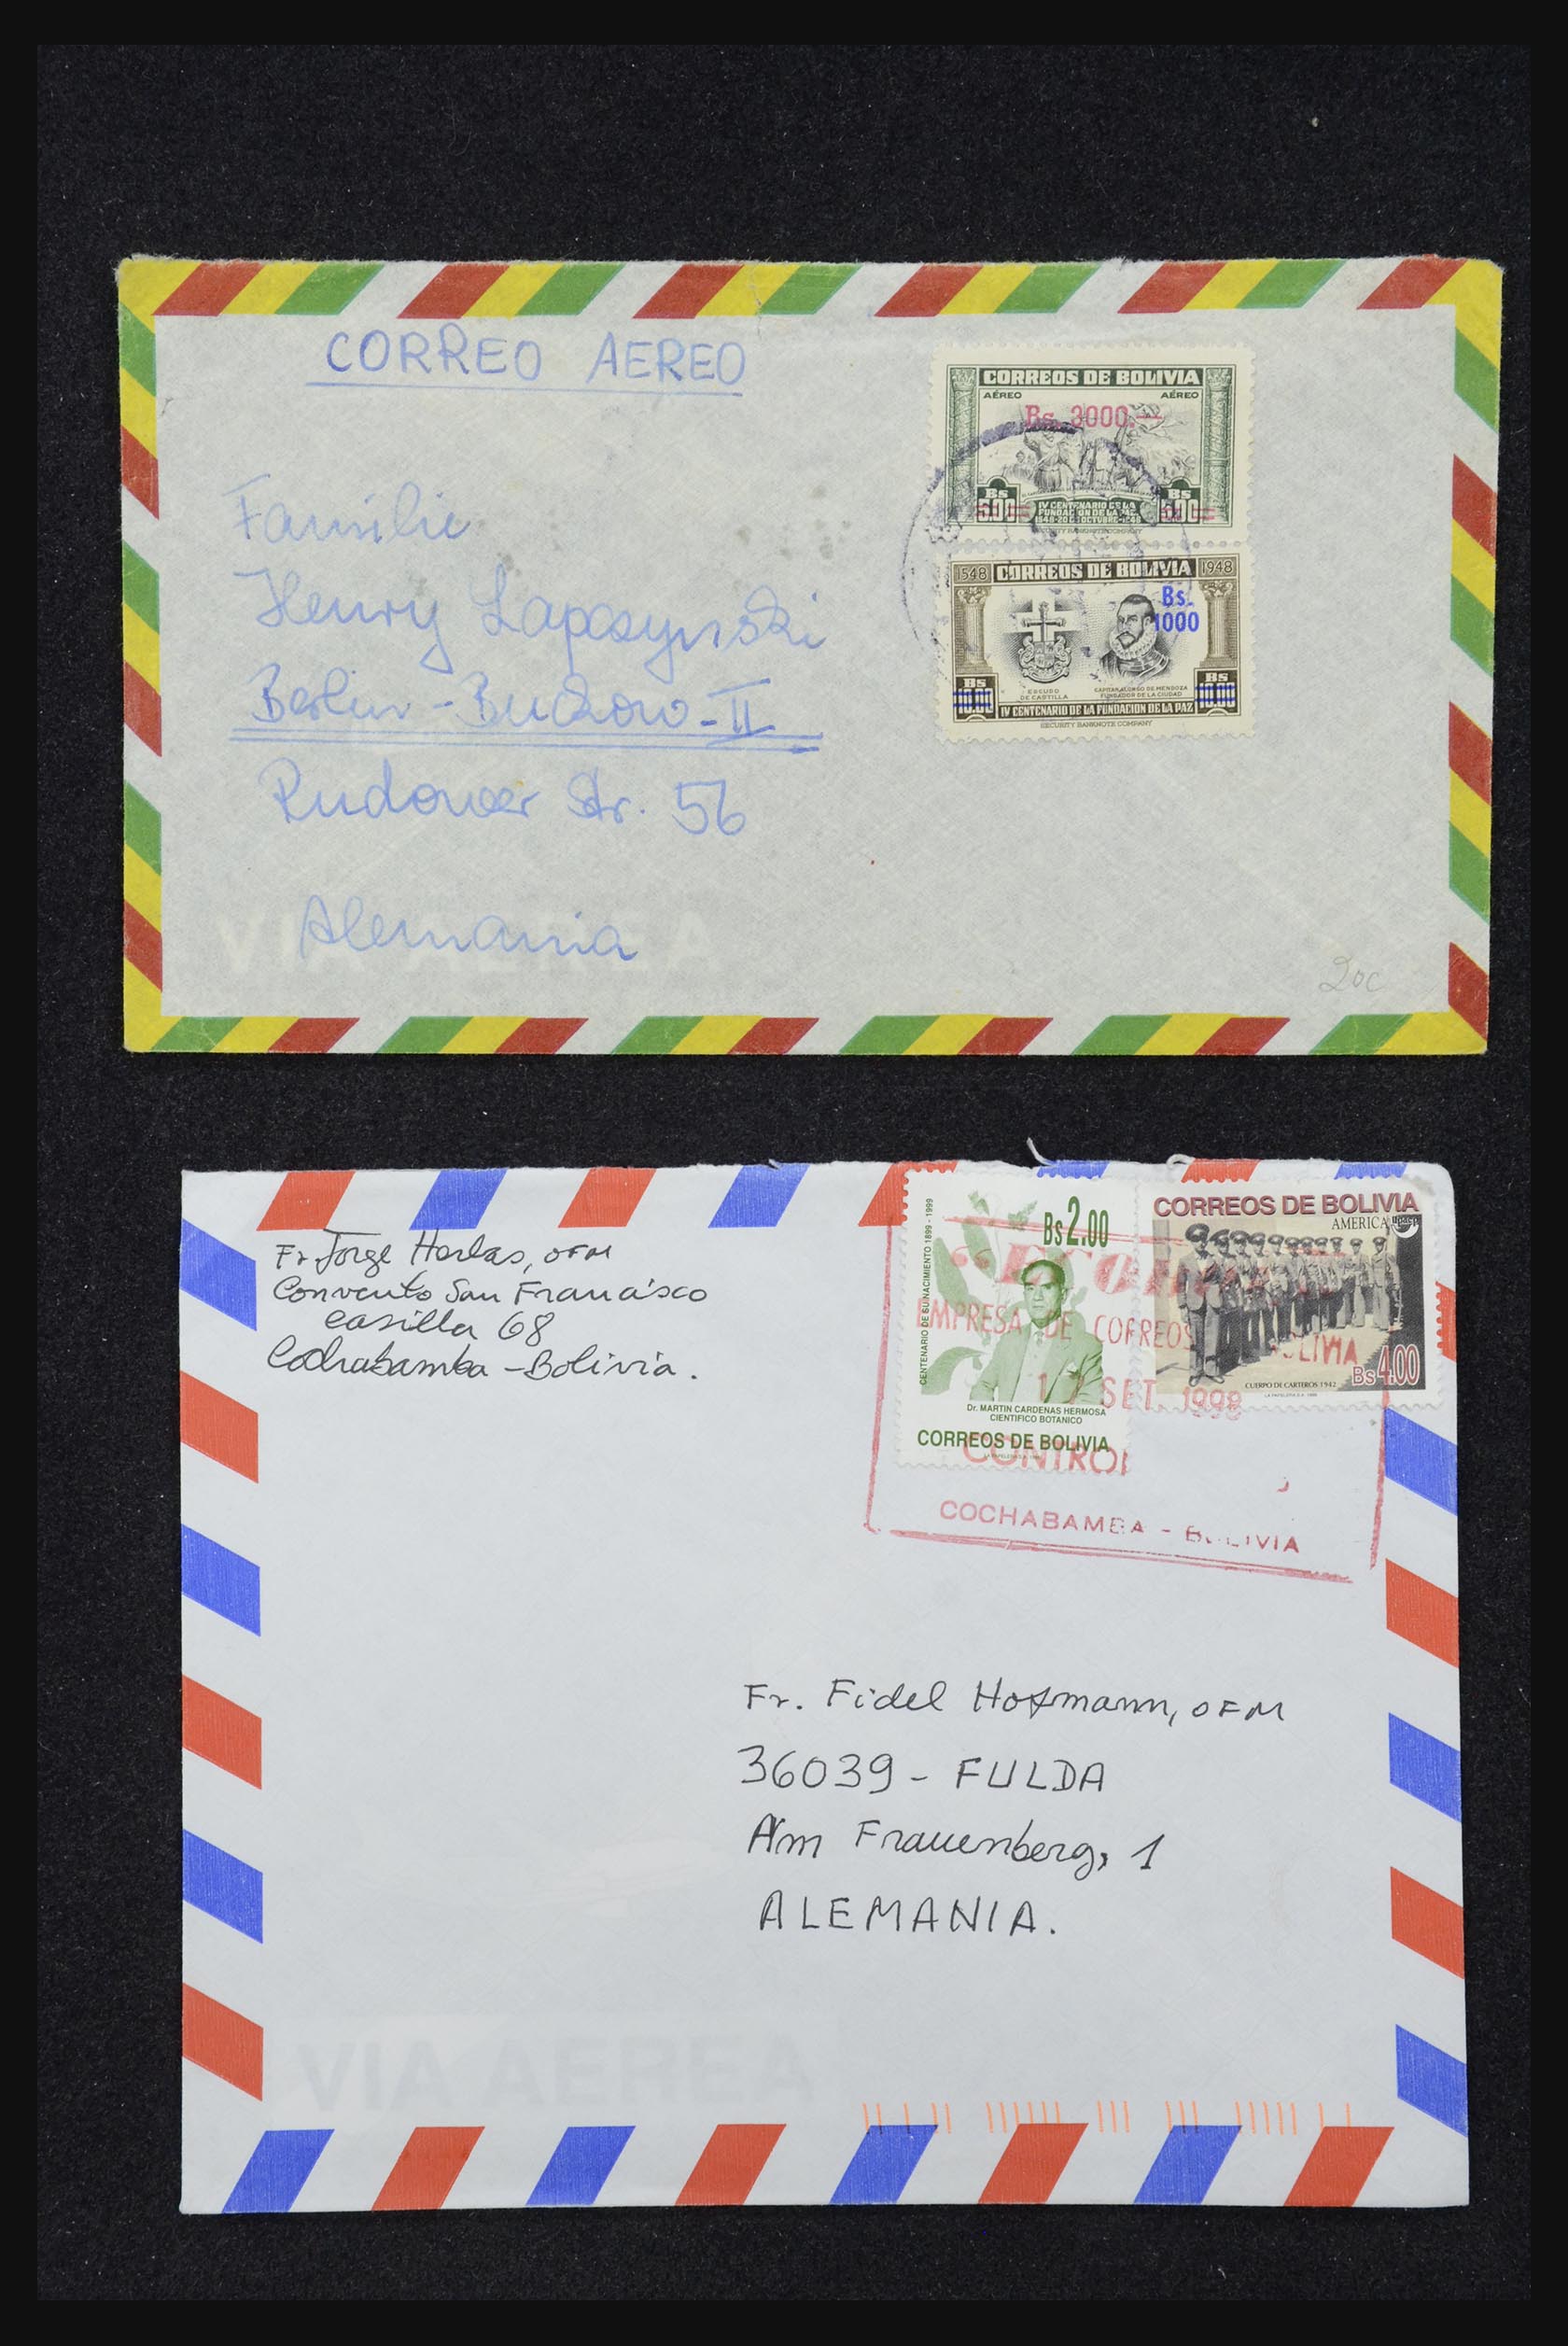 CORREO AEREO
Familie
Henry Lapczynski
Berlin-Buckow-II
Rudower Str. 56
Alemania
VIA AEREA
20c
CORREOS DE BOLIVIA
AÉREO AÉREO
Bs. 3000.—
Bs Bs
IV CENTENARIO DE LA
FUNDACION DE LA PAZ
1548-20 DE OCTUBRE-1948
SECURITY BANKNOTE COMPANY
1548 CORREOS DE BOLIVIA 1948
Bs.
1000
ESCUDO
DE CASTILLA
CAPITAN ALONSO DE MENDOZA
FUNDADOR DE LA CIUDAD
Bs Bs
10.00 10.00
IV CENTENARIO DE LA FUNDACION DE LA PAZ
SECURITY BANKNOTE COMPANY
Fr. Jorge Herbas, OFM
Convento San Francisco
Casilla 68
Cochabamba - Bolivia.
CENTENARIO DE SU NACIMIENTO 1899 - 1999
Bs 2.00
Dr. MARTIN CARDENAS HERMOSA
CIENTIFICO BOTANICO
CORREOS DE BOLIVIA
CORREOS DE BOLIVIA
AMERICA upaep
Bs 4.00
CUERPO DE CARTEROS 1942
EMPRESA DE CORREOS BOLIVIA
SET. 1998
CONTROL
COCHABAMBA - BOLIVIA
Fr. Fidel Hofmann, OFM
36039 - FULDA
Am Frauenberg, 1
ALEMANIA.
VIA AEREA